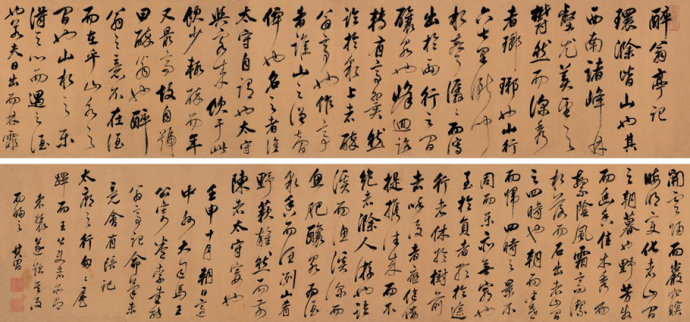 醉翁亭記
環滁皆山也其
西南諸峰林
壑尤美望之
蔚然而深秀
者瑯琊也山行
六七里漸聞
水聲潺潺而瀉
出於之間
釀泉也峰迴路
轉有亭翼然
臨於泉上者醉
翁亭也作亭
者誰山之僧智
僊也名之者誰
太守自謂也太守
與客來飲於此
飲少輒醉而年
又最高故自號
曰醉翁也醉
翁之意不在酒
而在乎山水之
間也山水之樂
得之心而寓之酒
也若夫日出而林霏
開雲歸而巖穴暝
晦明變化者山間
之朝暮也野芳發
而幽香佳木秀而
繁陰風霜高潔
水落而石出者山間
之四時也朝而往暮
而歸四時之景不
同而樂亦無窮也
至於負者歌於途
行者休於樹前
者呼後者應傴僂
提攜往來而不
絕者滁人遊也臨
溪而漁溪深而
魚肥釀泉為酒
泉香而酒洌山肴
野蔌雜然而前
陳者太守宴也
壬申十月朔日
大司馬王
公
翁亭記命
竟會有陪祀
太廟之行
其昌